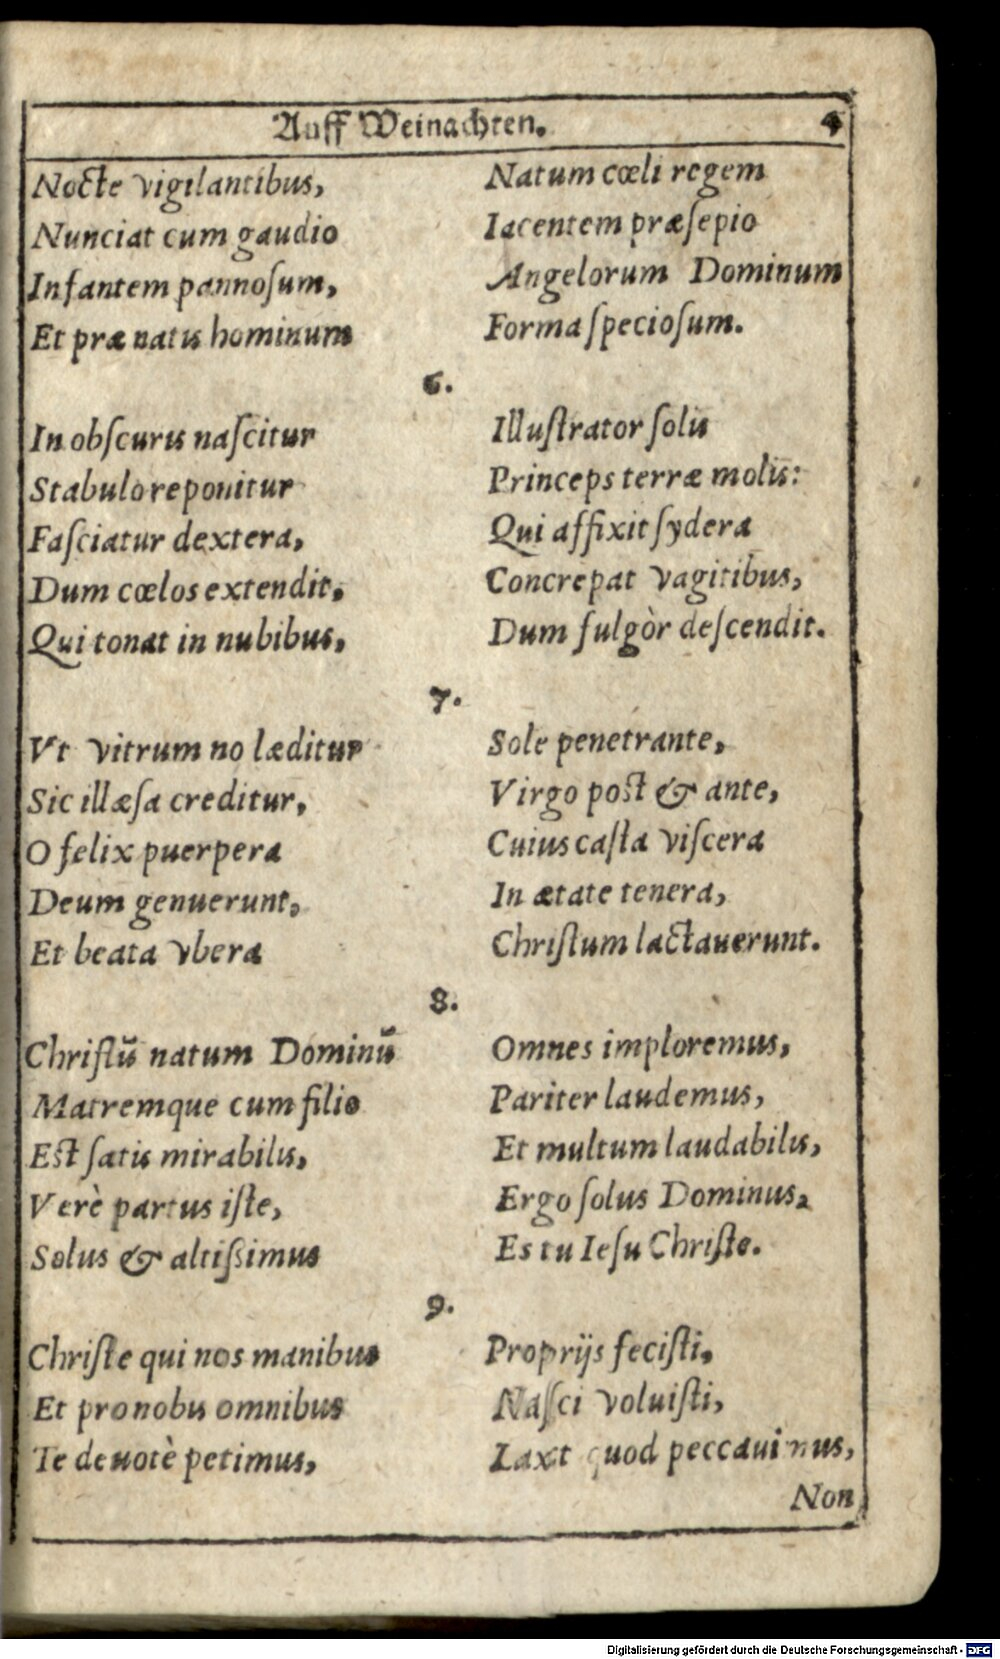 Auff Weinachten. 4
Nocte vigilantibus, Natum cœli regem
Nunciat cum gaudio Iacentem præſepio
Infantem pannoſum, Angelorum Dominum
Et præ natis hominum Forma ſpecioſum.
6.
In obſcuris naſcitur Illuſtrator ſolis
Stabulo reponitur Princeps terræ molis:
Faſciatur dextera, Qui affixit ſydera
Dum cœlos extendit, Concrepat vagitibus,
Qui tonat in nubibus, Dum fulgòr deſcendit.
7.
Vt vitrum no læditur Sole penetrante,
Sic illæſa creditur, Virgo poſt & ante,
O felix puerpera Cuius caſta viſcera
Deum genuerunt, In ætate tenera,
Et beata vbera Chriſtum lactauerunt.
8.
Chriſtū natum Dominū Omnes imploremus,
Matremque cum filio Pariter laudemus,
Eſt ſatis mirabilis, Et multum laudabilis,
Verè partus iſte, Ergo ſolus Dominus,
Solus & altiſsimus Es tu Ieſu Chriſte.
9.
Chriſte qui nos manibus Proprijs feciſti,
Et pro nobis omnibus Naſci voluiſti,
Te deuotè petimus, Laxt quod peccauimus,
Non
Digitalisierung gefördert durch die Deutsche Forschungsgemeinschaft - DFG